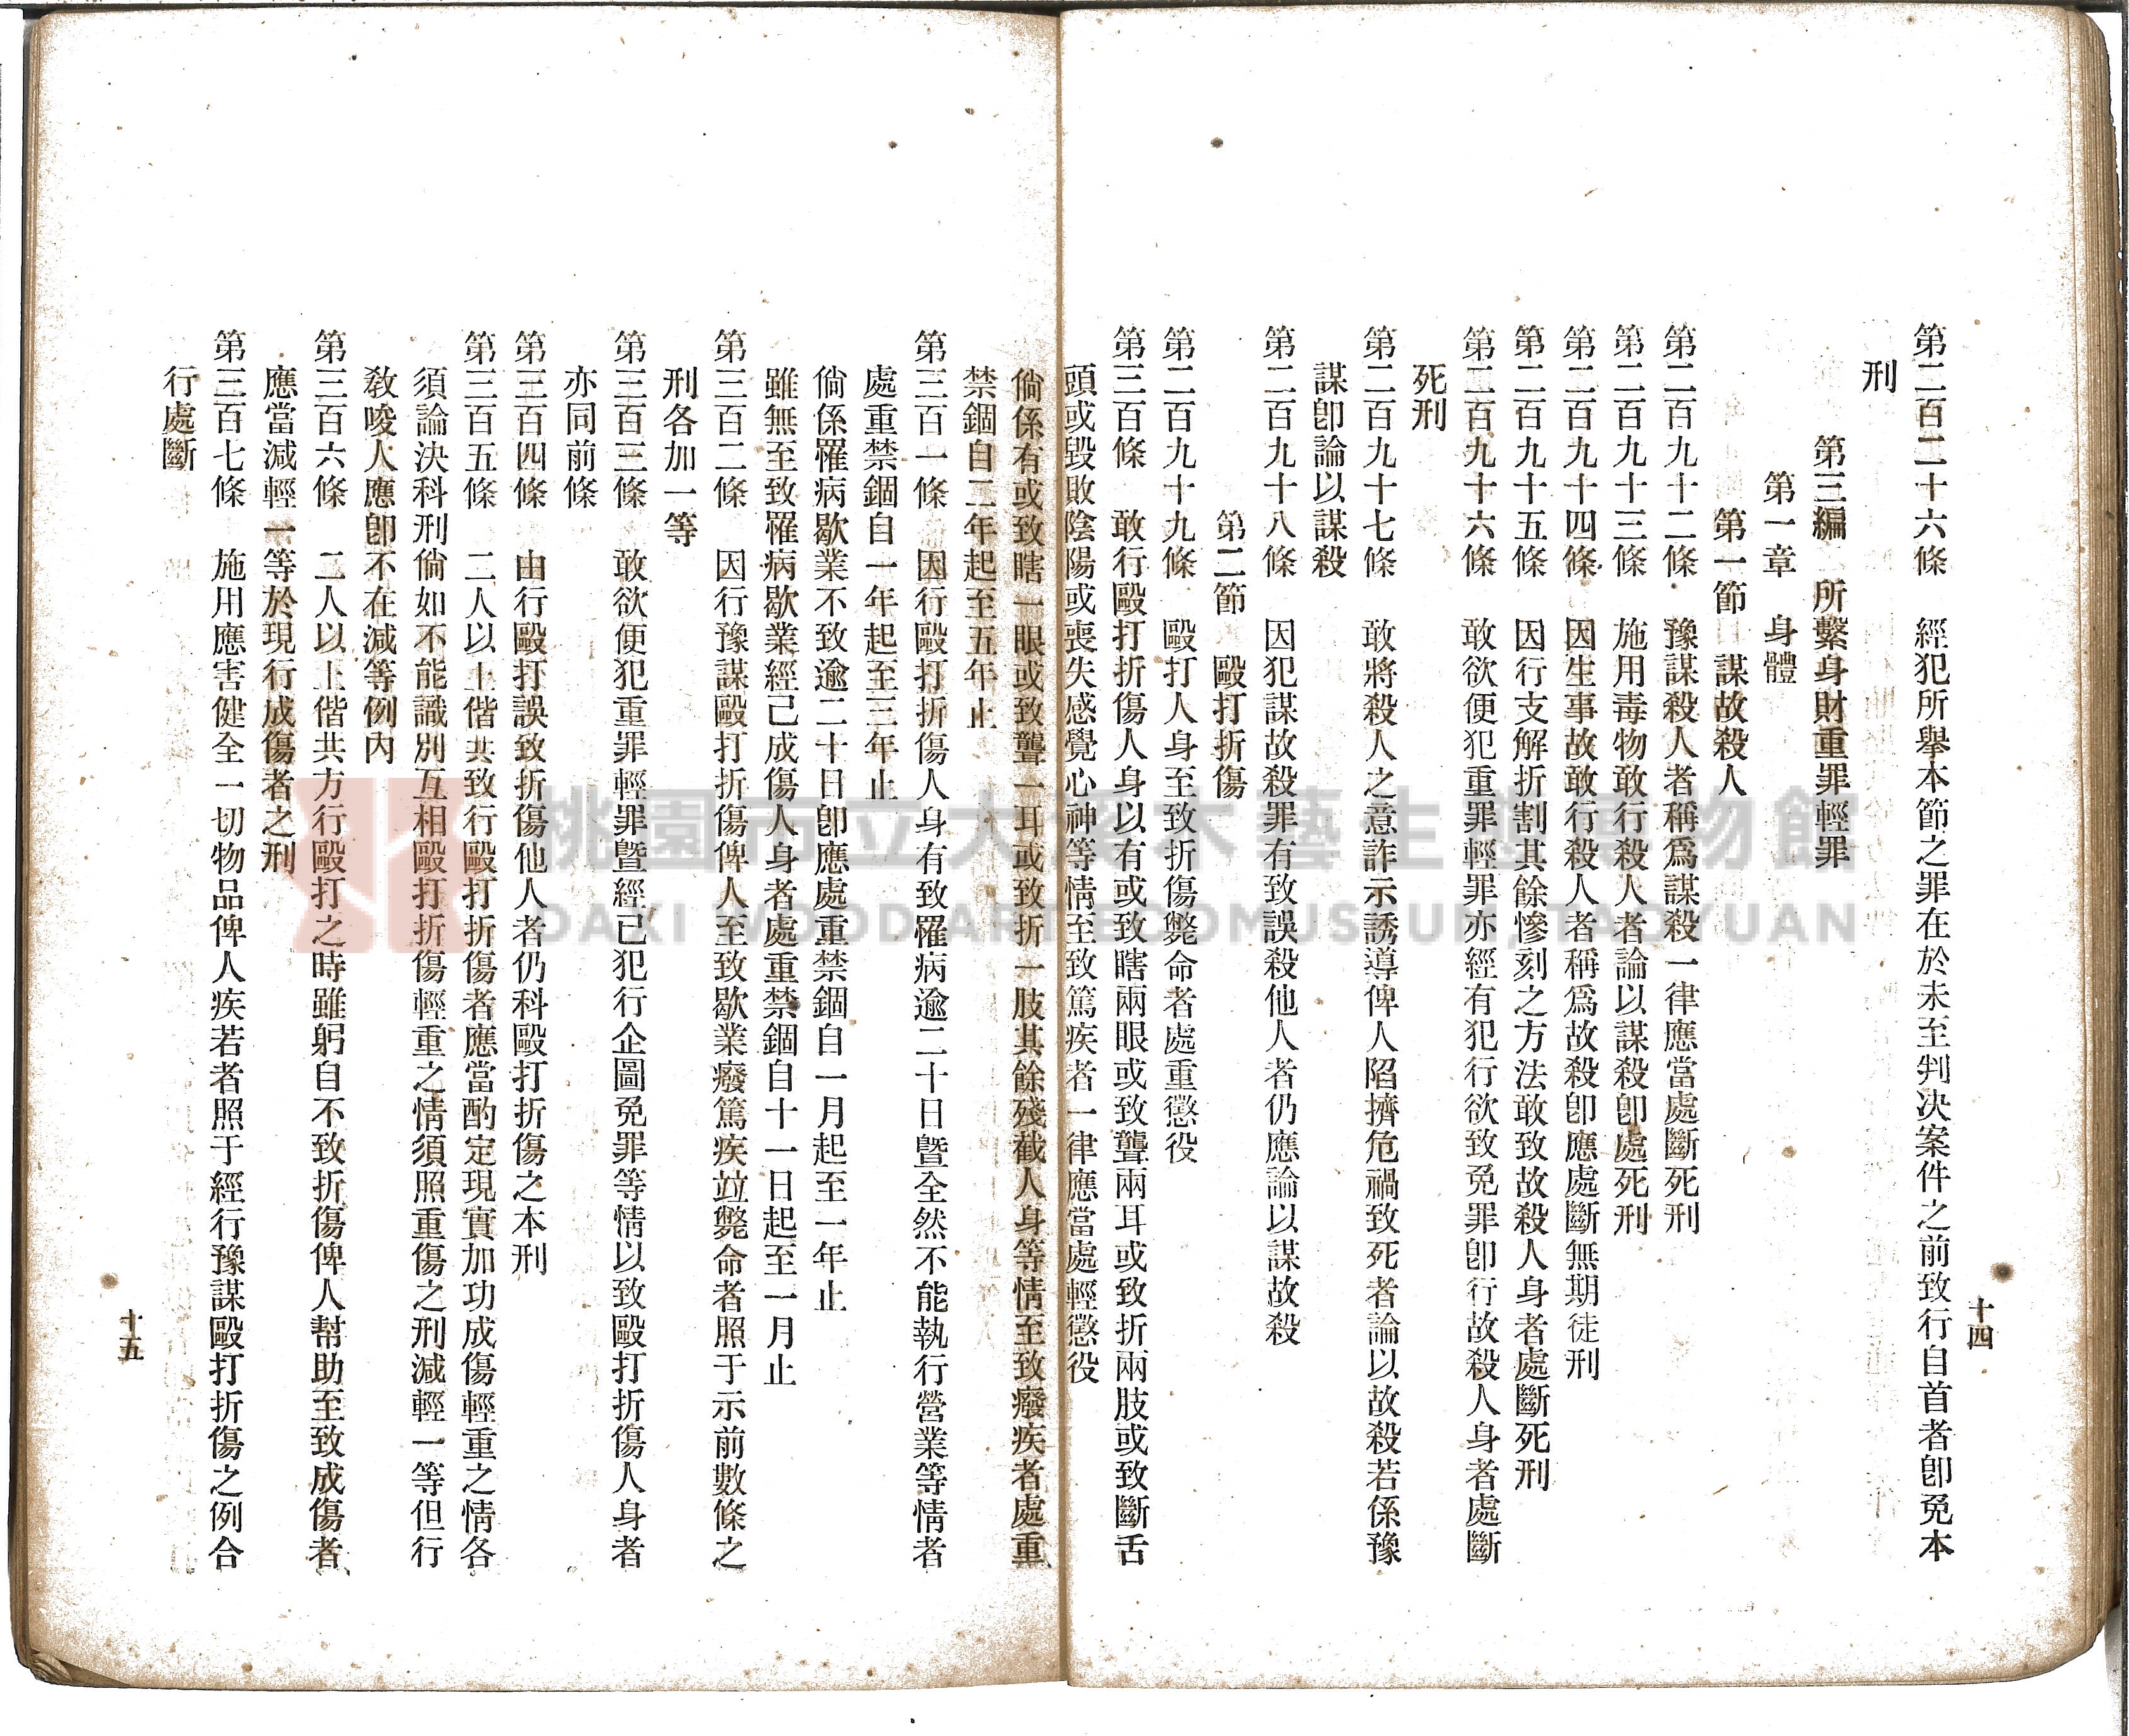 十四
第二百二十六條　經犯所舉本節之罪在於未至判決案件之前致行自首者卽免本
刑
第三編　所繫身財重罪輕罪
第一章　身體
第一節　謀故殺人
第二百九十二條　豫謀殺人者稱爲謀殺一律應當處斷死刑
第二百九十三條　施用毒物敢行殺人者論以謀殺卽處死刑
第二百九十四條　因生事故敢行殺人者稱爲故殺卽應處斷無期徒刑
第二百九十五條　因行支解折割其餘慘刻之方法敢致故殺人身者處斷死刑
第二百九十六條　敢欲便犯重罪輕罪亦經有犯行欲致免罪卽行故殺人身者處斷
死刑
第二百九十七條　敢將殺人之意詐示誘導俾人陷擠危禍致死者論以故殺若係豫
謀卽論以謀殺
第二百九十八條　因犯謀故殺罪有致誤殺他人者仍應論以謀故殺
第二節　毆打折傷
第二百九十九條　毆打人身至致折傷斃命者處重懲役
第三百條　敢行毆打折傷人身以有或致瞎兩眼或致聾兩耳或致折兩肢或致斷舌
頭或毀敗陰陽或喪失感覺心神等情至致篤疾者一律應當處輕懲役
倘係有或致瞎一眼或致聾一耳或致折一肢其餘殘截人身等情至致癈疾者處重
禁錮自二年起至五年止
第三百一條　因行毆打折傷人身有致罹病逾二十日曁全然不能執行營業等情者
處重禁錮自一年起至三年止
倘係罹病歇業不致逾二十日卽應處重禁錮自一月起至一年止
雖無至致罹病歇業經已成傷人身者處重禁錮自十一日起至一月止
第三百二條　因行豫謀毆打折傷俾人至致歇業癈篤疾竝斃命者照于示前數條之
刑各加一等
第三百三條　敢欲便犯重罪輕罪曁經已犯行企圖免罪等情以致毆打折傷人身者
亦同前條
第三百四條　由行毆打誤致折傷他人者仍科毆打折傷之本刑
第三百五條　二人以上偕共致行毆打折傷者應當酌定現實加功成傷輕重之情各
須論決科刑倘如不能識別互相毆打折傷輕重之情須照重傷之刑減輕一等但行
敎唆人應卽不在減等例內
第三百六條　二人以上偕共方行毆打之時雖躬自不致折傷俾人幫助至致成傷者
應當減輕一等於現行成傷者之刑
第三百七條　施用應害健全一切物品俾人疾若者照于經行豫謀毆打折傷之例合
行處斷
十五
桃園市立大溪木藝生態博物館
DAXI WOOD ART ECOMUSEUM, TAOYUAN